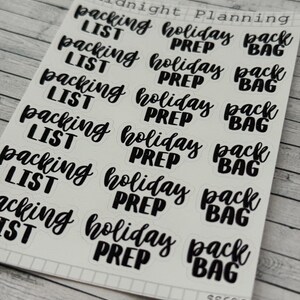 Midnight Planning
packing LIST holiday PREP pack BAG
packing LIST holiday PREP pack BAG
packing LIST holiday PREP pack BAG
packing LIST holiday PREP pack BAG
packing LIST holiday PREP pack BAG
packing LIST holiday PREP pack BAG